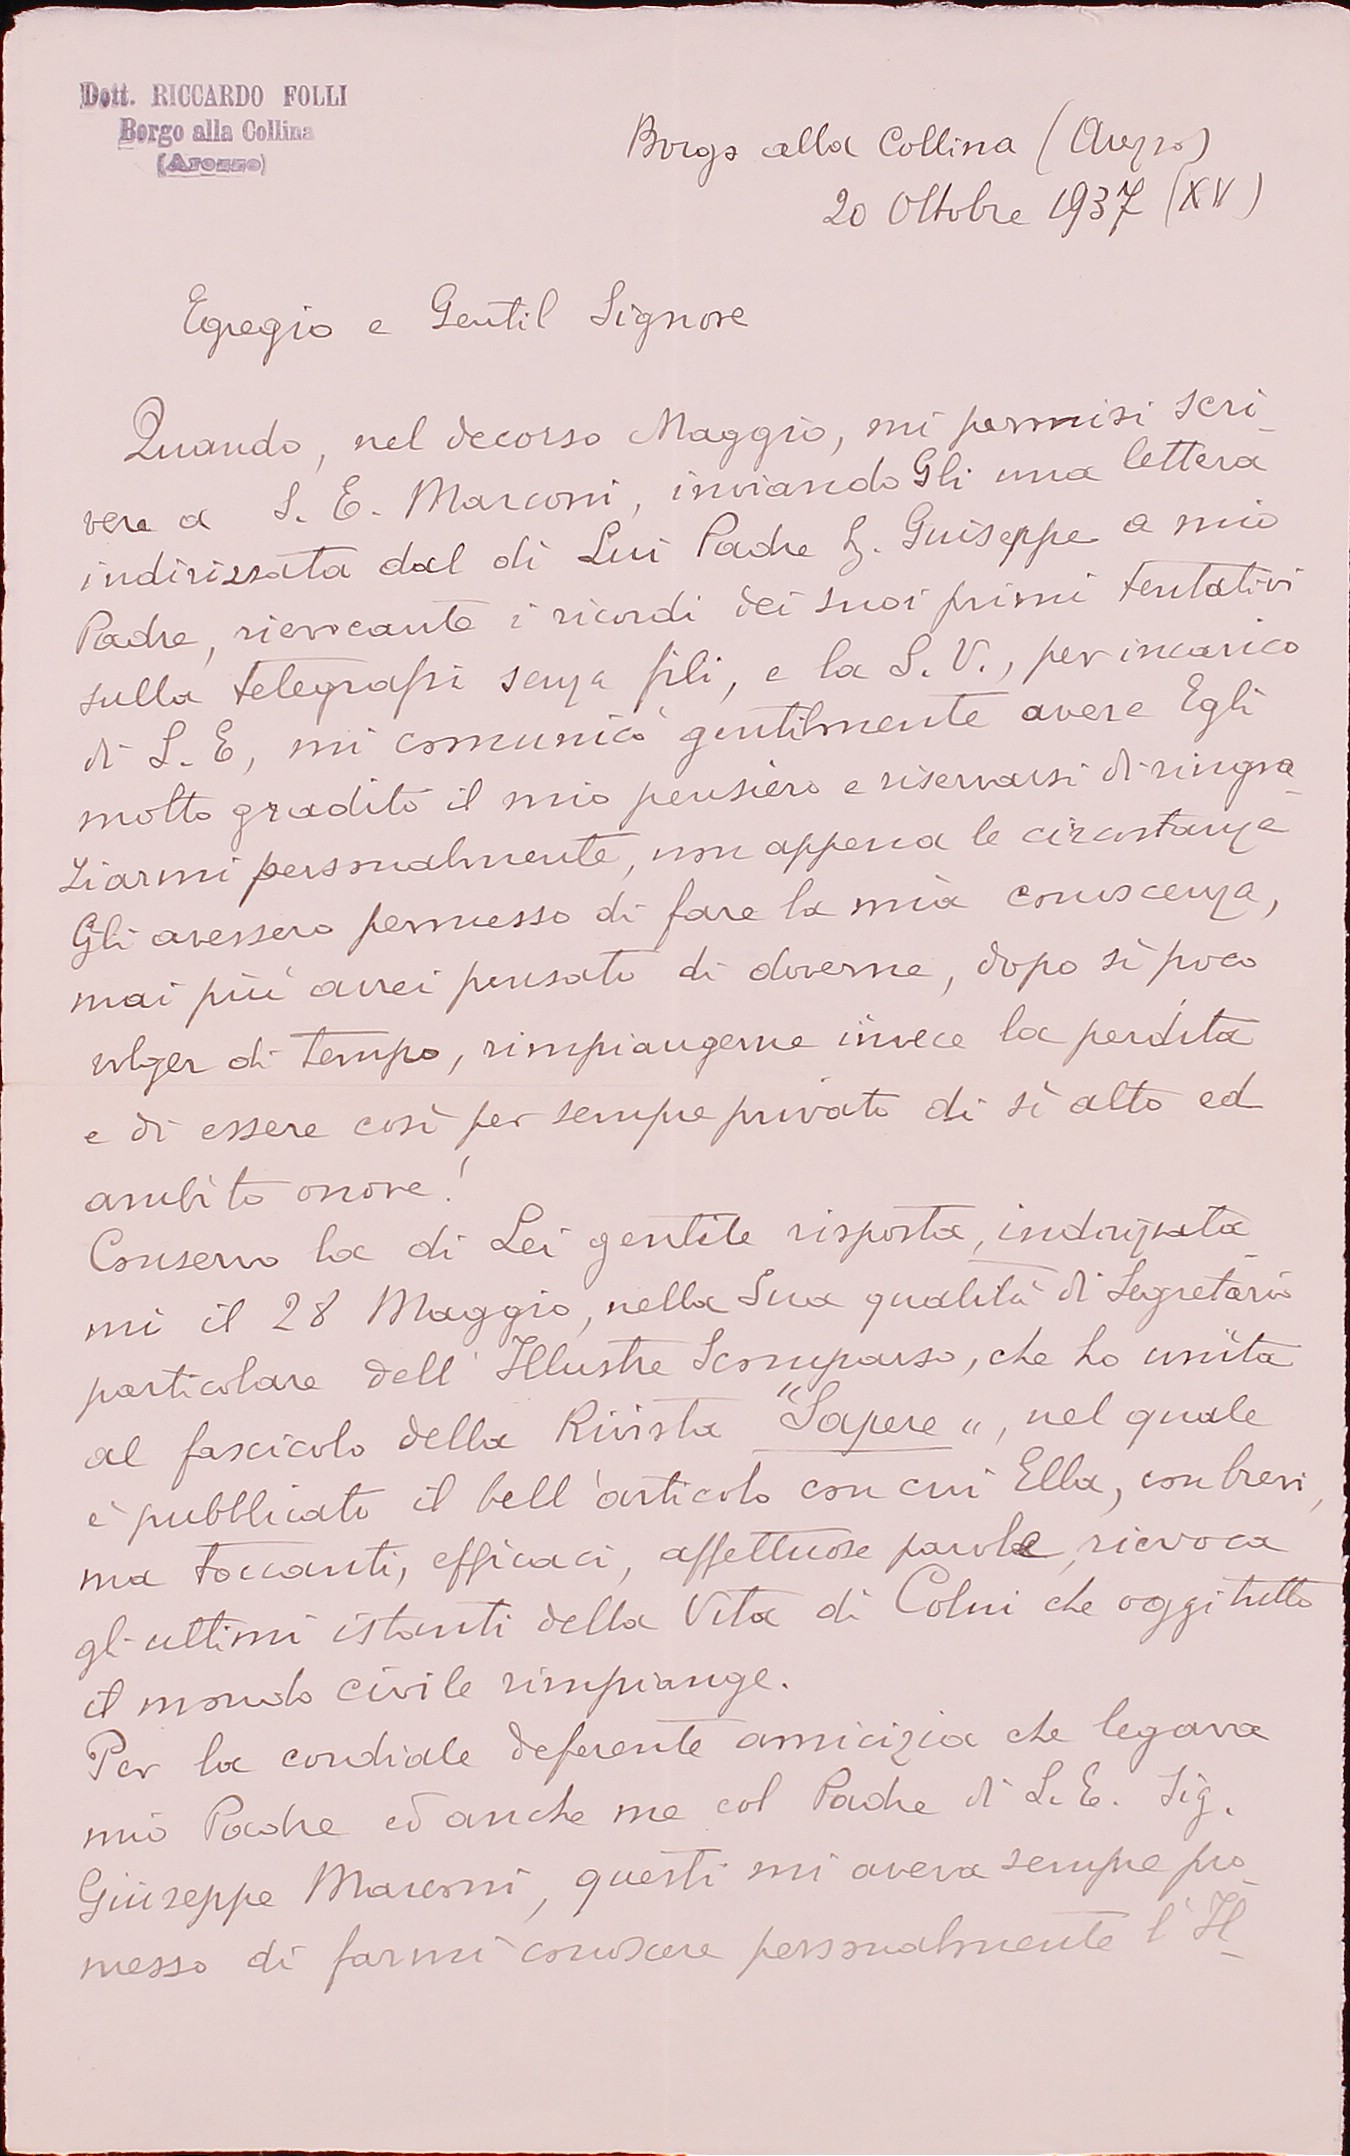 Dott. RICCARDO FOLLI
Borgo alla Collina
(Arezzo)
Borgo alla Collina (Arezzo)
20 Ottobre 1937 (XV)
Egregio e Gentil Signore
Quando, nel decorso Maggio, mi permisi scri_
vere a S. E. Marconi, inviandoGli una lettera
indirizzata dal di Lui Padre S. Guiseppe a mio
Padre, rievocante i ricordi dei suoi primi tentativi
sulla telegrafia senza fili, e la S. V., per incarico
di S. E, mi comunicò gentilmente avere Egli
molto gradito il mio pensiero e riservarsi di ringra_
ziarmi personalmente, non appena le circostanze
Gli avessero permesso di fare la mia conoscenza,
mai più avrei pensato di doverne, dopo sì poco
volger di tempo, rimpiangerne invece la perdita
e di essere così per sempre privato di sì alto ed
ambito onore!
Conservo la di Lei gentile risposta, indirizzata_
mi il 28 Maggio, nella Sua qualità di Segretario
particolare dell'Illustre Scomparso, che ho unita
al fascicolo della Rivista "Sapere", nel quale
è pubblicato il bell'articolo con cui Ella, con brevi,
ma toccanti, efficaci, affettuose parole, rievoca
gli ultimi istanti della Vita di Colui che oggi tutto
il mondo civile rimpiange.
Per la cordiale deferente amicizia che legava
mio Padre ed anche me col Padre di S. E. Sig.
Giuseppe Marconi, questi mi aveva sempre pro_
messo di farmi conoscere personalmente l'Il_